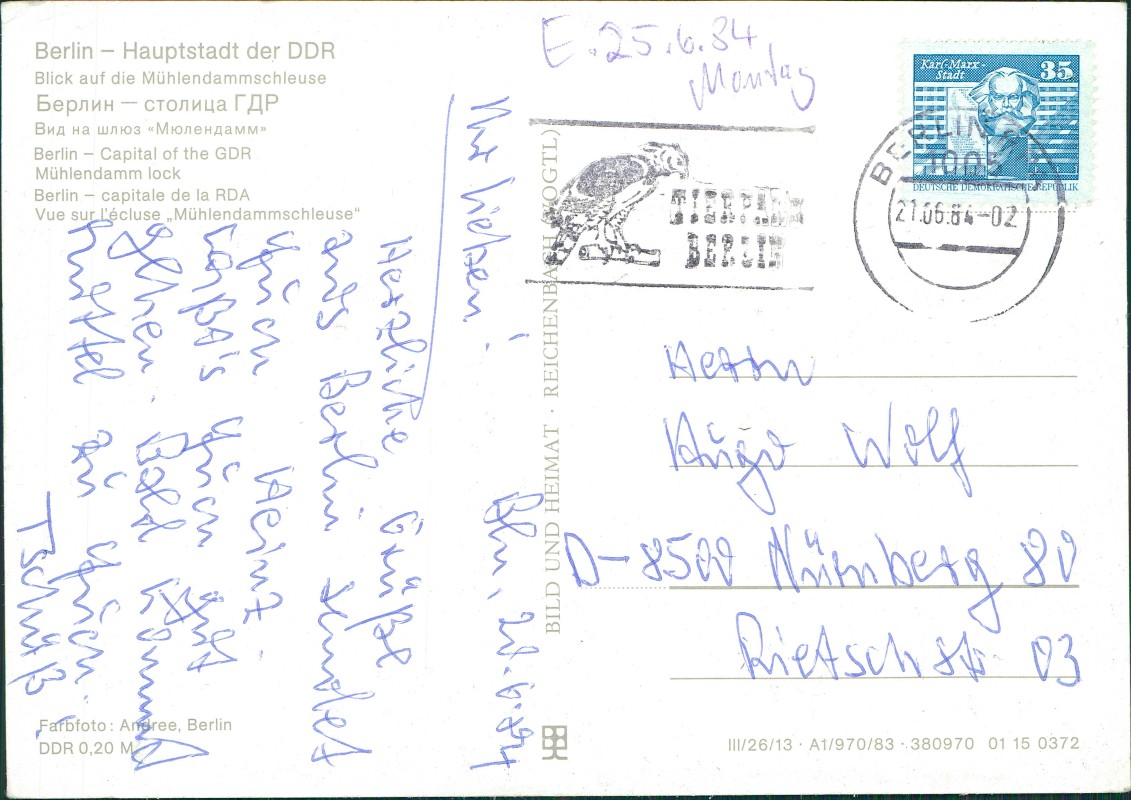 Berlin – Hauptstadt der DDR
Blick auf die Mühlendammschleuse
Берлин — столица ГДР
Вид на шлюз «Мюлендамм»
Berlin – Capital of the GDR
Mühlendamm lock
Berlin – capitale de la RDA
Vue sur l'écluse „Mühlendammschleuse“
E. 25.6.84,
Montag
Karl-Marx-
Stadt
35
DEUTSCHE DEMOKRATISCHE REPUBLIK
BERLIN
1005
21.06.84-02
TIERPARK
BERLIN
Bln, 21.6.84
Ihr Lieben!
Herzliche Grüße
aus Berlin sendet
Heinz.
gut
Bald kommt
zu
Tschüß!
BILD UND HEIMAT · REICHENBACH (VOGTL)
Herrn
Hugo Wolf
D-8500 Nürnberg 80
Rietschstr. 03
Farbfoto: Andree, Berlin
DDR 0,20 M
III/26/13 · A1/970/83 · 380970 01 15 0372